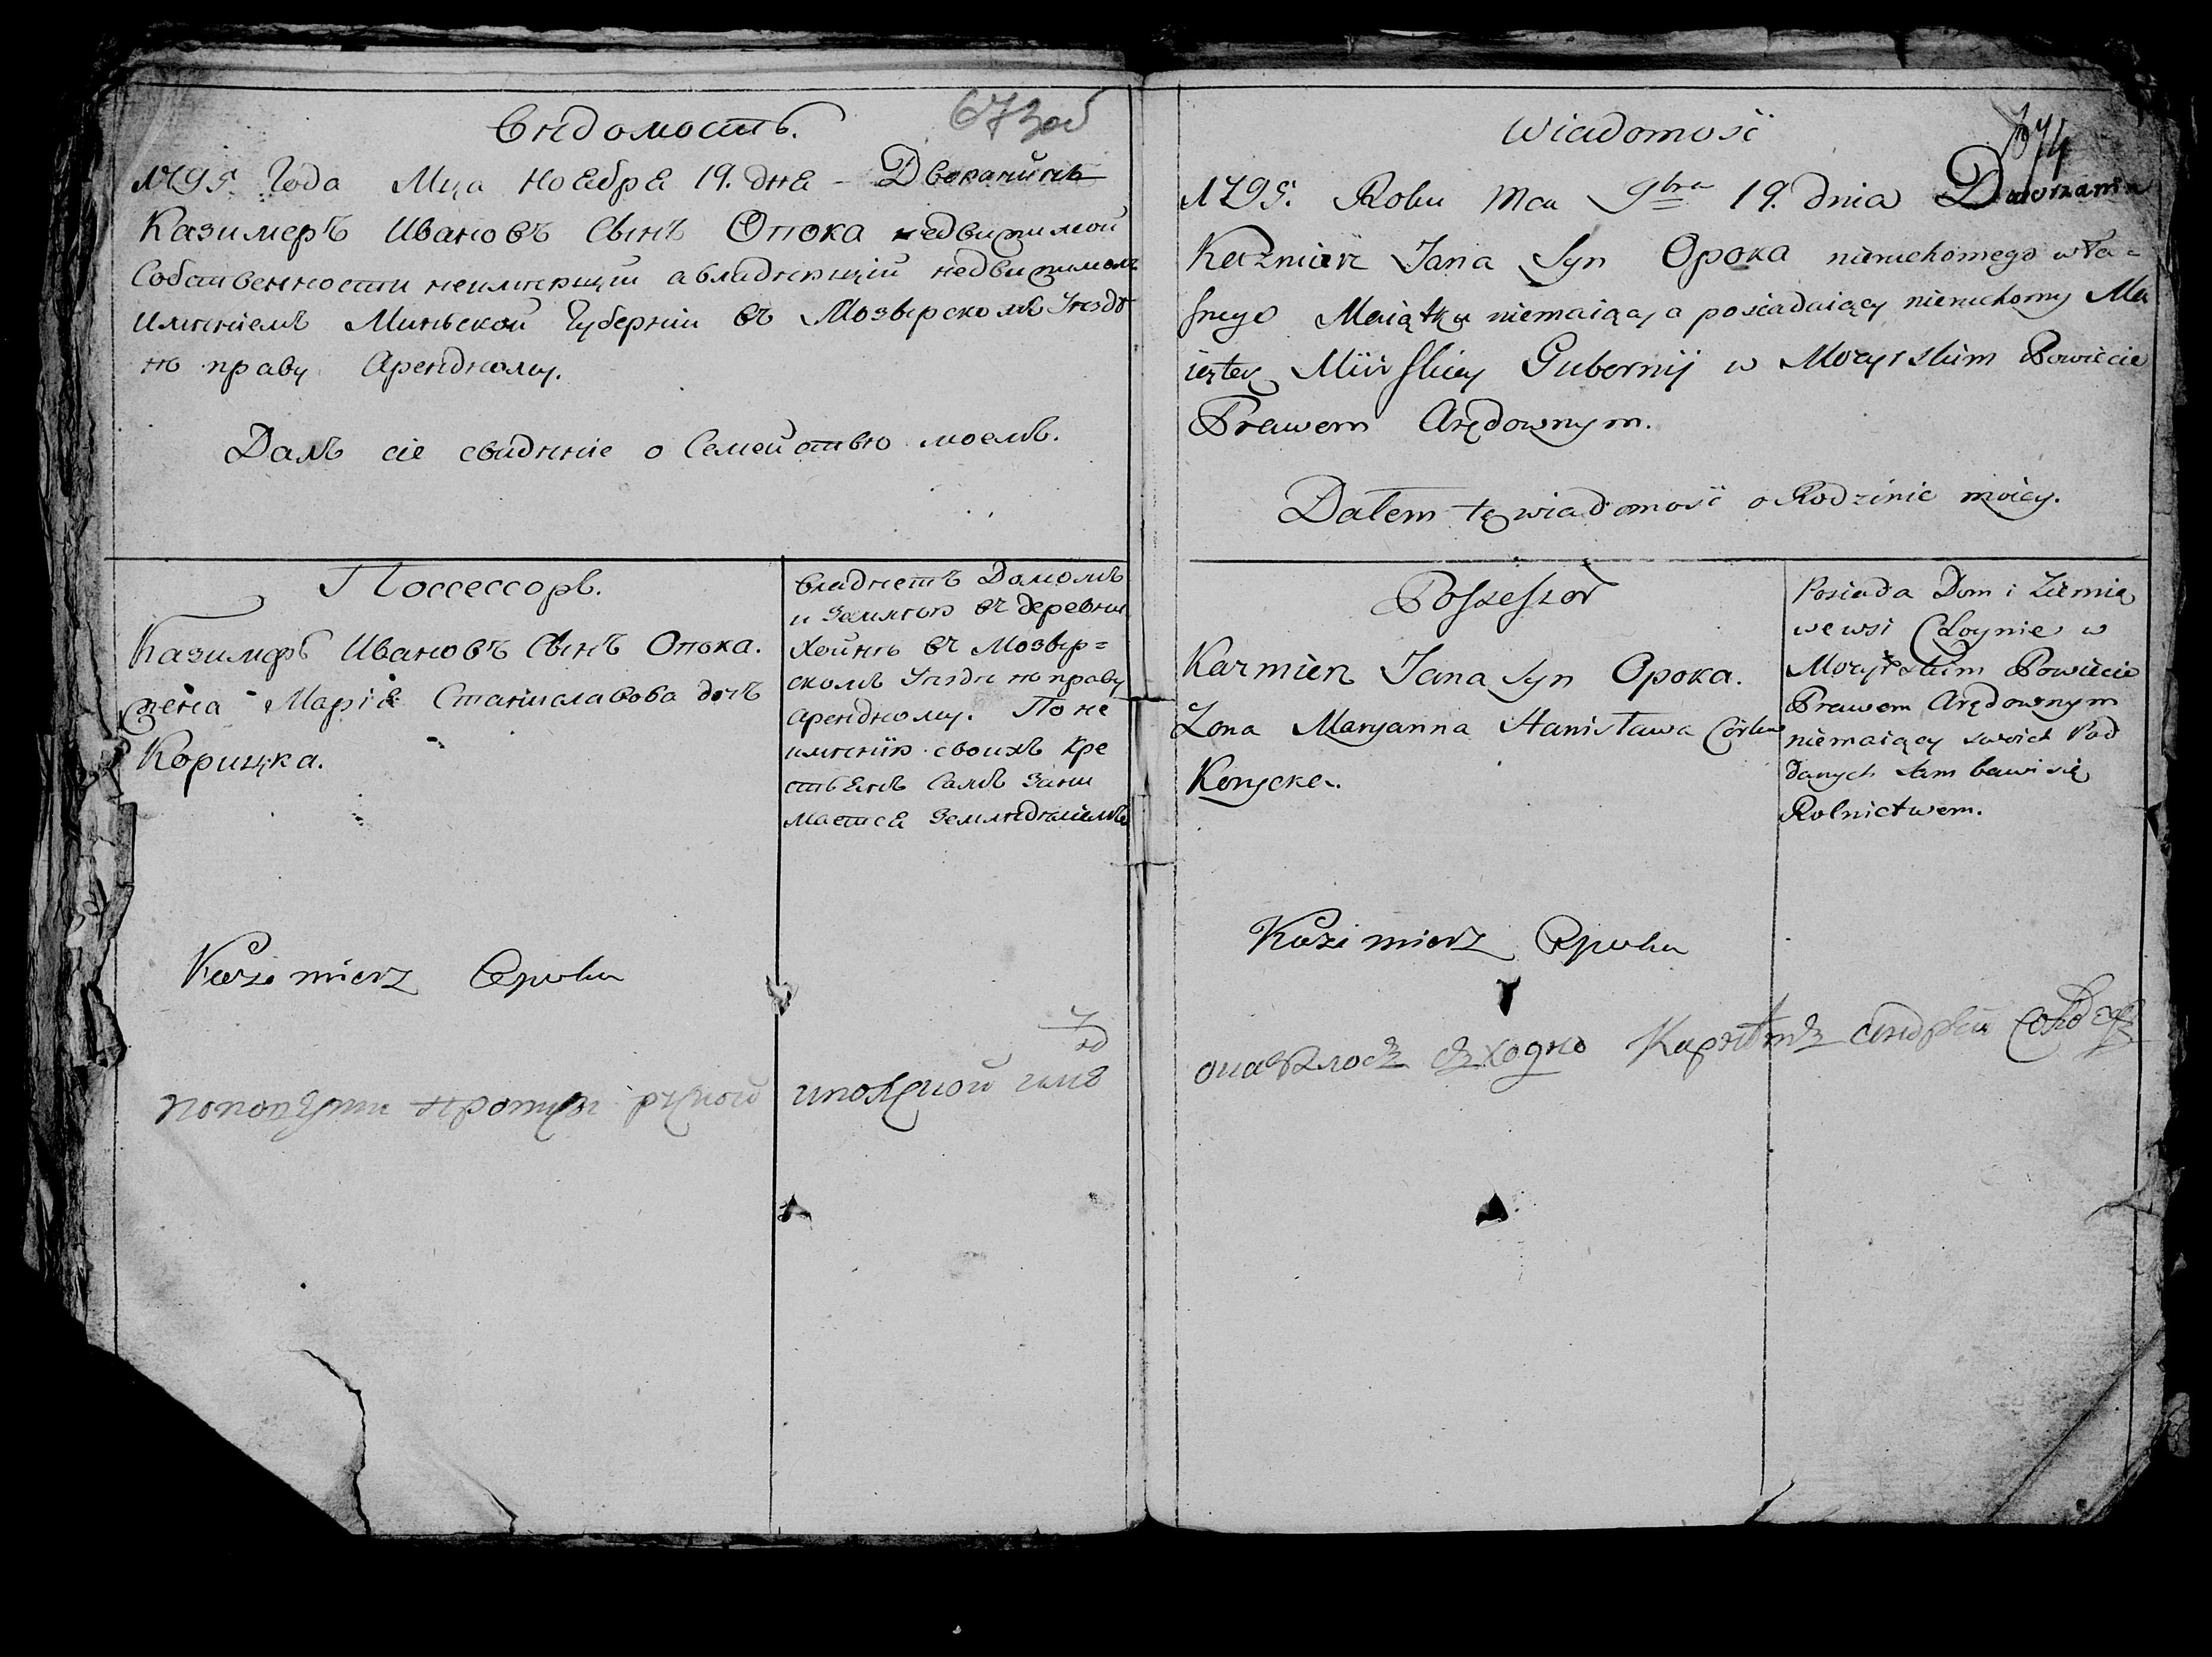 Вѣдомость.
673 об
1795. Года Мца Ноября 19. дня - Дворанинъ
Казимеръ Ивановъ Сынъ Опока недвижимой
Собственности неимѣющій а владѣющій недвижимомъ
имѣніемъ Миньской Губерніи въ Мозырскомъ Уѣздѣ
по праву Арендному.
Далъ сіе свидѣніе о Семействѣ моемъ.
Поссессоръ.
Казимеръ Ивановъ Сынъ Опока.
жена Марія Станиславова дочъ
Корицка.
владѣетъ Домомъ
и Землѣю въ деревни
Хойнѣ въ Мозыр=
скомъ Уѣзди по праву
Арендному. По не
имѣнію своихъ кре
стьянъ Самъ зани
мается Земледѣліемъ
Kazimierz Opoka
Wiadomość
674
1795. Roku Mca 9bra 19. dnia Dworzanin
Kazmierz Jana Syn Opoka nieruchomego wła=
snego Maiątku niemaiący a posiadaiący nieruchomy Ma
iątek Mińskiey Gubernij w Mozyrskim Powiecie
Prawem Arędownym.
Dałem tę wiadomość o Rodzinie moiey.
Possessor
Kazmierz Jana Syn Opoka.
Zona Maryanna Stanisława Córka
Korycka.
Posiada Dom i Ziemię
we wsi Choynie w
Mozyrskim Powiecie
Prawem Arędownym
niemaiący swoich Pod
danych sam bawi się
Rolnictwem.
Kazimierz Opoka
оказалось сходно Капитанъ Андрей